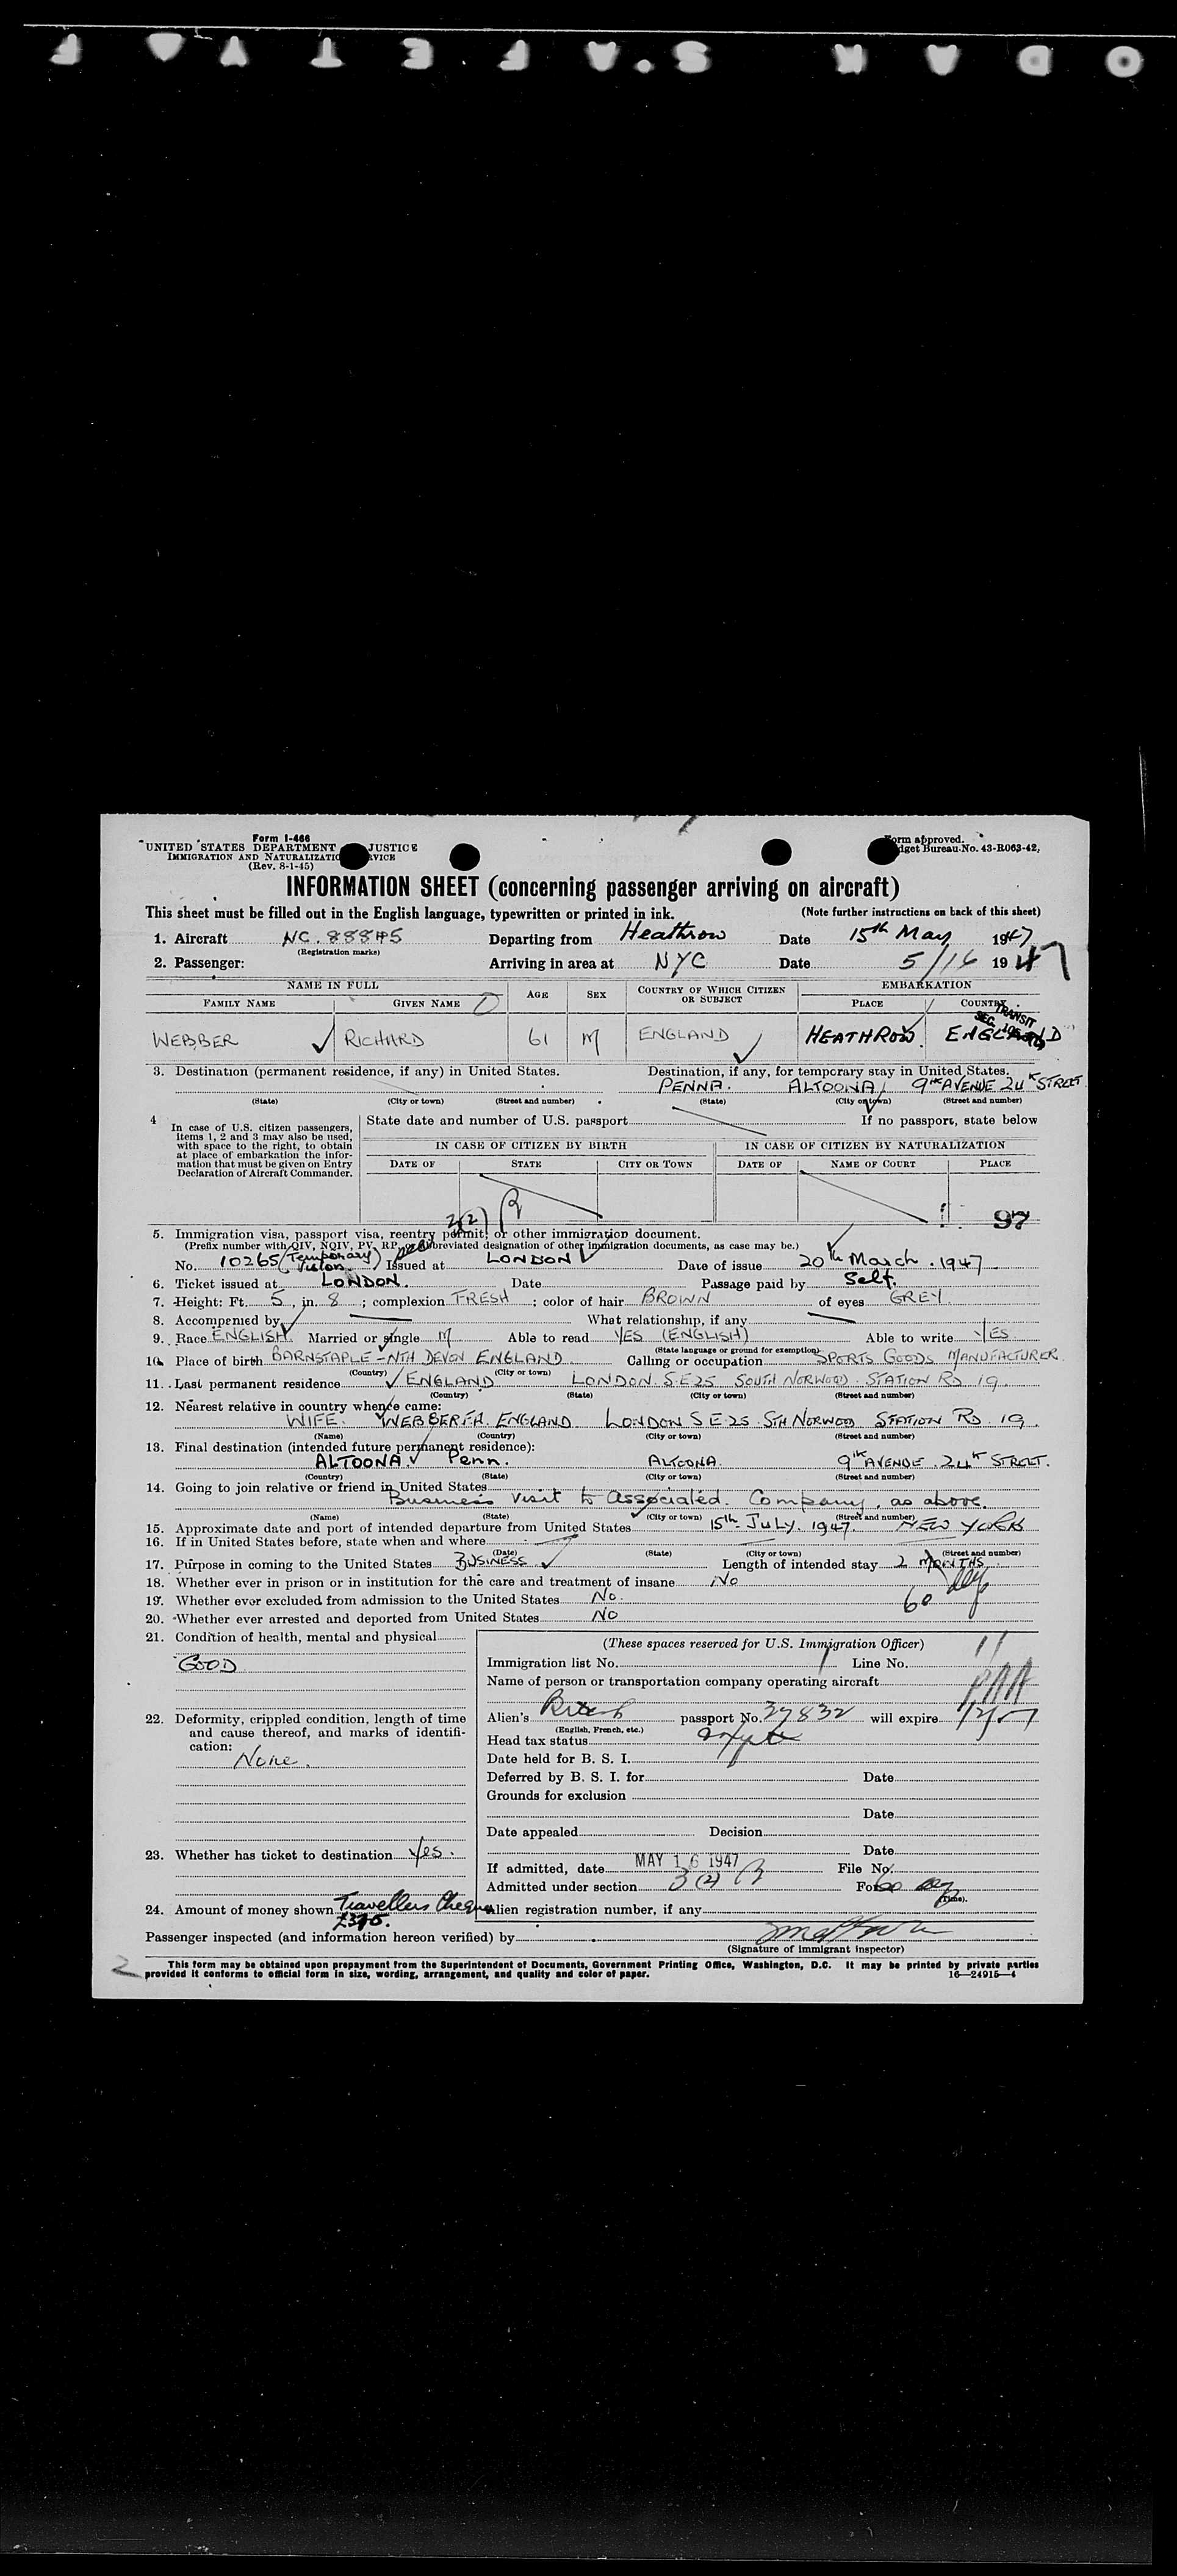 Form I-466
UNITED STATES DEPARTMENT JUSTICE
IMMIGRATION AND NATURALIZATION SERVICE
(Rev. 8-1-45)
Form approved.
Budget Bureau No. 43-R063-42.
INFORMATION SHEET (concerning passenger arriving on aircraft)
This sheet must be filled out in the English language, typewritten or printed in ink. (Note further instructions on back of this sheet)
1. Aircraft NC. 88845 Departing from Heathrow Date 15th May 1947
(Registration marks)
2. Passenger: Arriving in area at NYC Date 5/16 1947
NAME IN FULL AGE SEX COUNTRY OF WHICH CITIZEN OR SUBJECT EMBARKATION
FAMILY NAME GIVEN NAME PLACE COUNTRY
TRANSIT
WEBBER RICHARD 61 M ENGLAND HEATHROW ENGLAND
3. Destination (permanent residence, if any) in United States. Destination, if any, for temporary stay in United States.
PENNA. ALTOONA 9th AVENUE 24th STREET
(State) (City or town) (Street and number) (State) (City or town) (Street and number)
4 In case of U.S. citizen passengers, items 1, 2 and 3 may also be used, with space to the right, to obtain at place of embarkation the information that must be given on Entry Declaration of Aircraft Commander.
State date and number of U.S. passport If no passport, state below
IN CASE OF CITIZEN BY BIRTH IN CASE OF CITIZEN BY NATURALIZATION
DATE OF STATE CITY OR TOWN DATE OF NAME OF COURT PLACE
97
3(2) B
5. Immigration visa, passport visa, reentry permit, or other immigration document.
(Prefix number with QIV, NQIV, PV, RP, or abbreviated designation of other immigration documents, as case may be.)
No. 10265 (Temporary Visitor) Issued at LONDON Date of issue 20th March. 1947
6. Ticket issued at LONDON. Date Passage paid by Self.
7. Height: Ft. 5, in. 8; complexion FRESH; color of hair BROWN of eyes GREY
8. Accompanied by What relationship, if any
9. Race ENGLISH Married or single M Able to read YES (ENGLISH) Able to write YES
(State language or ground for exemption)
10. Place of birth BARNSTAPLE - NTH DEVON ENGLAND Calling or occupation SPORTS GOODS MANUFACTURER
(Country) (City or town)
11. Last permanent residence ENGLAND LONDON. S.E25 SOUTH NORWOOD STATION RD 19.
(Country) (State) (City or town) (Street and number)
12. Nearest relative in country whence came:
WIFE. WEBBER F.A. ENGLAND LONDON S E 25 STH NORWOOD STATION RD. 19.
(Name) (Country) (City or town) (Street and number)
13. Final destination (intended future permanent residence):
ALTOONA. Penn. ALTOONA. 9th AVENUE. 24th STREET.
(Country) (State) (City or town) (Street and number)
14. Going to join relative or friend in United States
Business visit to associated. Company, as above.
(Name) (State) (City or town) (Street and number)
15. Approximate date and port of intended departure from United States 15th JULY. 1947. NEW YORK
16. If in United States before, state when and where
(Date) (State) (City or town) (Street and number)
17. Purpose in coming to the United States BUSINESS Length of intended stay 2 MONTHS
18. Whether ever in prison or in institution for the care and treatment of insane No
19. Whether ever excluded from admission to the United States No. 60
20. Whether ever arrested and deported from United States NO
21. Condition of health, mental and physical
GOOD
22. Deformity, crippled condition, length of time and cause thereof, and marks of identification:
None.
23. Whether has ticket to destination Yes.
24. Amount of money shown Travellers Cheque
(These spaces reserved for U.S. Immigration Officer)
Immigration list No. 1 Line No. 11
Name of person or transportation company operating aircraft PAA
Alien's British passport No. 37832 will expire
(English, French, etc.)
Head tax status
Date held for B. S. I.
Deferred by B. S. I. for Date
Grounds for exclusion
Date
Date appealed Decision
Date
If admitted, date MAY 16 1947 File No.
Admitted under section 3 (2) B For 60
(Time).
Alien registration number, if any
Passenger inspected (and information hereon verified) by
(Signature of immigrant inspector)
2
This form may be obtained upon prepayment from the Superintendent of Documents, Government Printing Office, Washington, D.C. It may be printed by private parties
provided it conforms to official form in size, wording, arrangement, and quality and color of paper. 16—24915—4